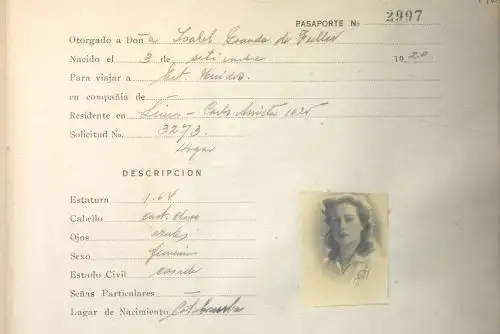 PASAPORTE No 2997
Otorgado a Doña Isabel Granda de Fuller
Nacido el 3 de setiembre 1920
Para viajar a Est. Unidos.
en compañia de —
Residente en Lima - Carlos Arrieta 1025
Solicitud No. 3273
Hogar
DESCRIPCION
Estatura 1.64
Cabello cast. claro
Ojos azules
Sexo femenino
Estado Civil casada
Señas Particulares —
Lugar de Nacimiento